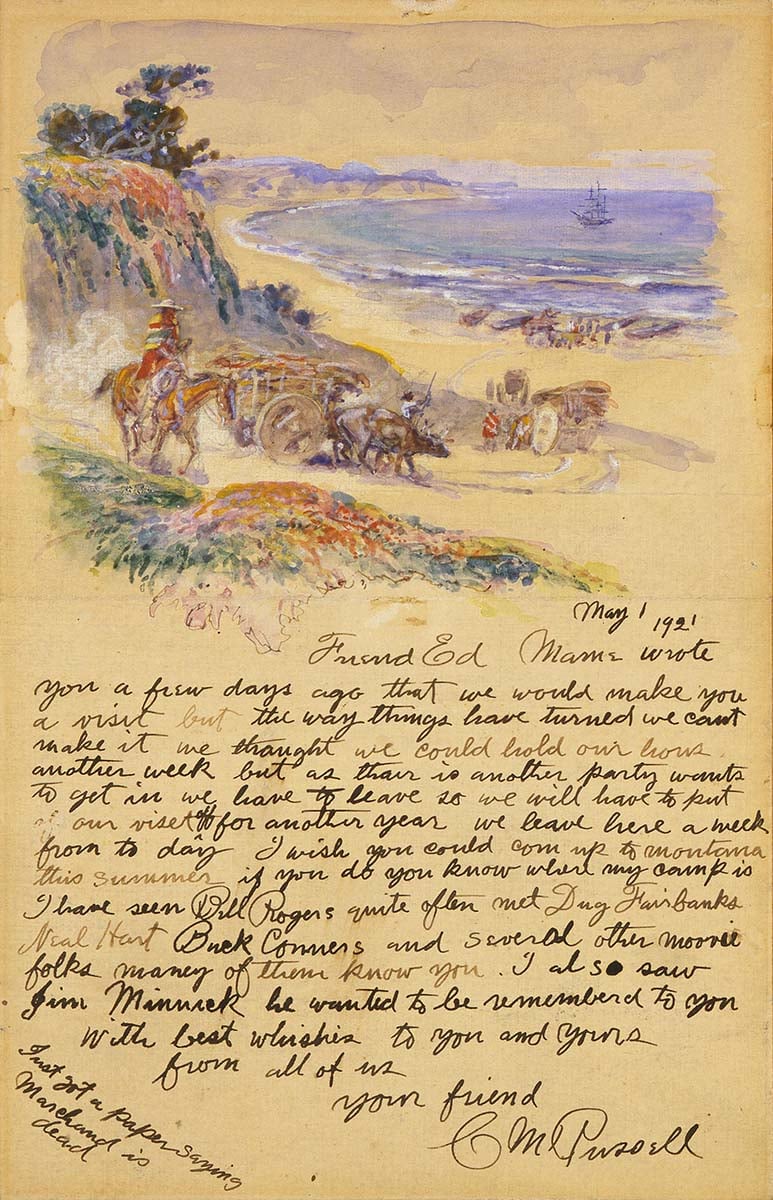 May 1 1921
Friend Ed Mame wrote
you a few days ago that we would make you
a visit but the way things have turned we cant
make it we thaught we could hold our hous
another week but as thair is another party wants
to get in we have to leave so we will have to put
our viset off for another year we leave here a week
from to day I wish you could com up to montana
this summer if you do you know where my camp is
I have seen Bill Rogers quite often met Dug Fairbanks
Neal Hart Buck Conners and several other moovie
folks maney of them know you. I also saw
Jim Minnick he wanted to be rememberd to you
With best whishes to you and yours
from all of us
your friend
C M Russell
Just got a paper saying
Marchand is
dead